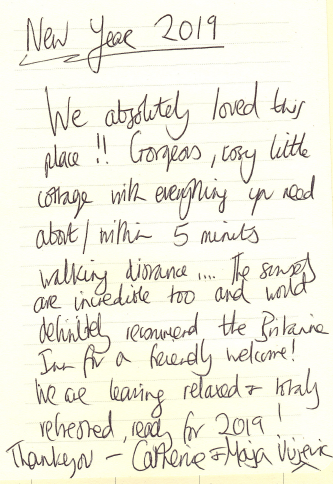 New Year 2019
We absolutely loved this
place !! Gorgeous, cosy little
cottage with everything you need
about / within 5 minutes
walking distance .... The sunsets
are incredible too and would
definitely recommend the Britannia
Inn for a friendly welcome!
We are leaving relaxed & totally
refreshed, ready for 2019!
Thankyou - Catherine & Maja